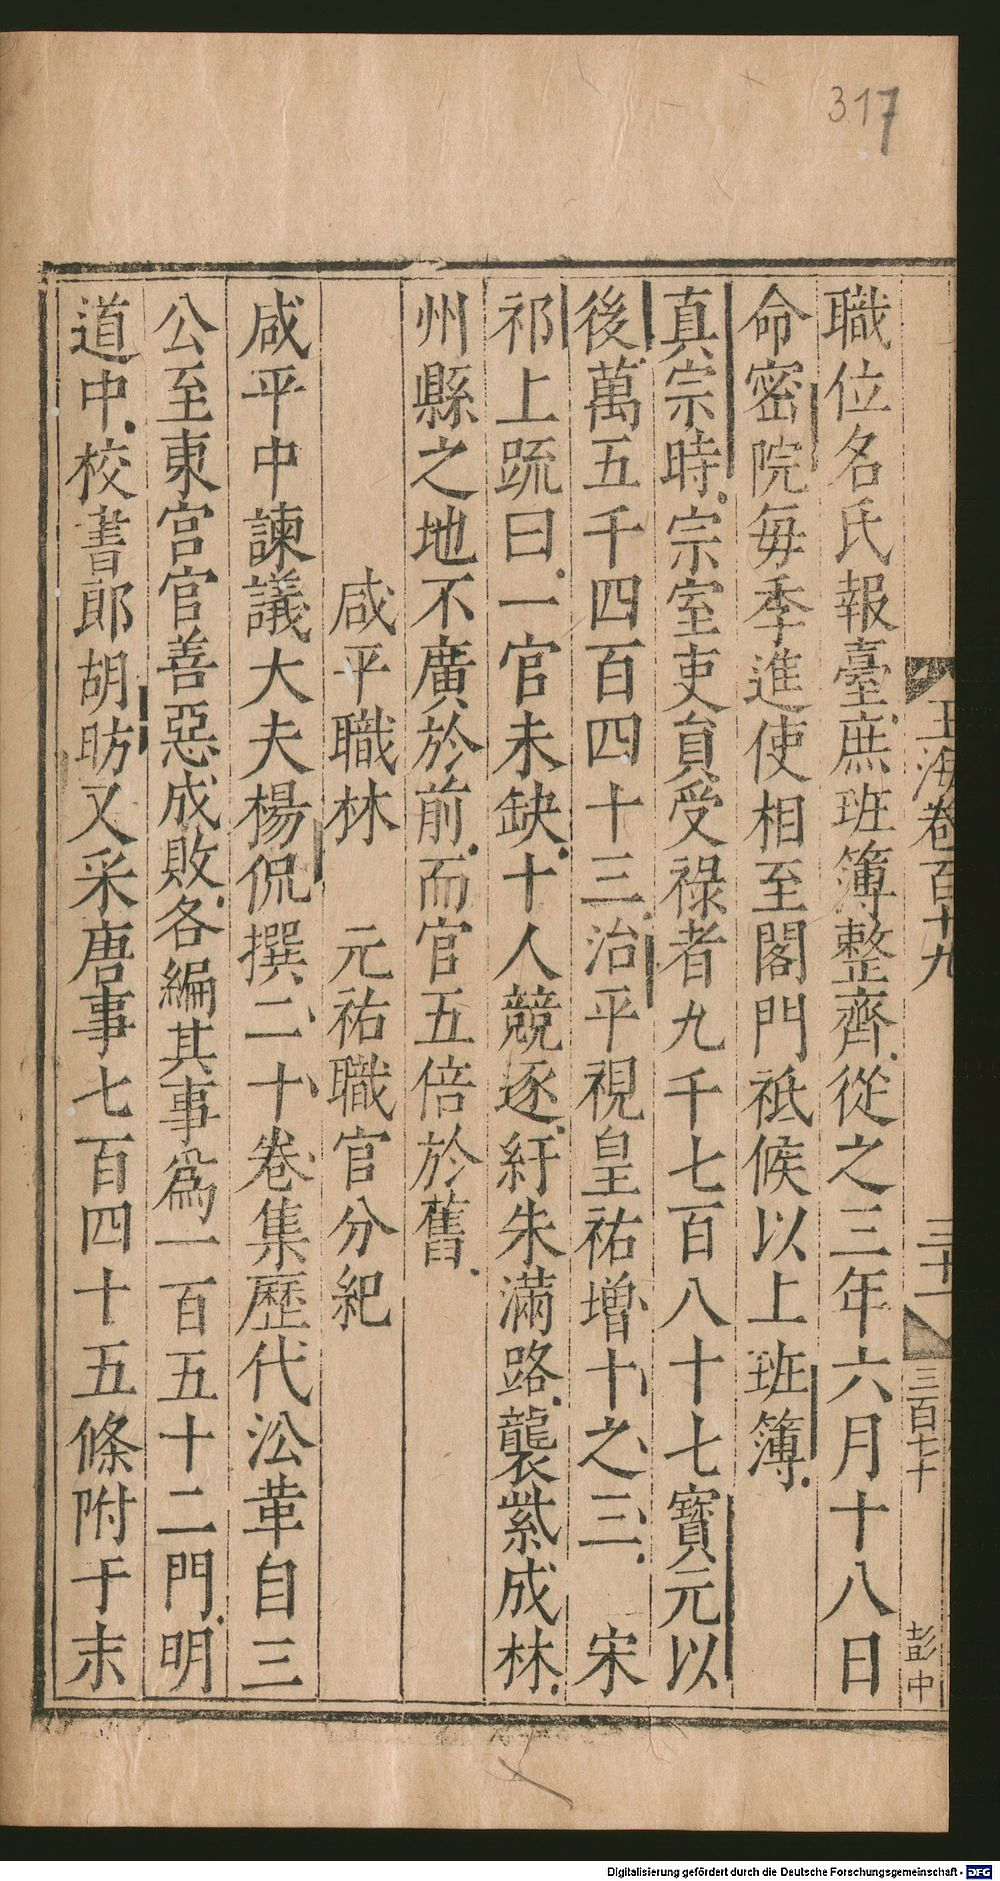 317
玉海卷百十九
三十一
三百七十
彭中
職位名氏報臺庶班簿整齊從之三年六月十八日
命密院每季進使相至閤門祗候以上班簿
真宗時宗室吏貟受祿者九千七百八十七寶元以
後萬五千四百四十三治平視皇祐增十之三　宋
祁上䟽曰一官未缺十人競逐紆朱滿路襲紫成林
州縣之地不廣於前而官五倍於舊
咸平職林　元祐職官分紀
咸平中諫議大夫楊侃撰二十卷集歷代沿革自三
公至東宮官善惡成敗各編其事爲一百五十二門明
道中校書郎胡昉又采唐事七百四十五條附于末
Digitalisierung gefördert durch die Deutsche Forschungsgemeinschaft - DFG